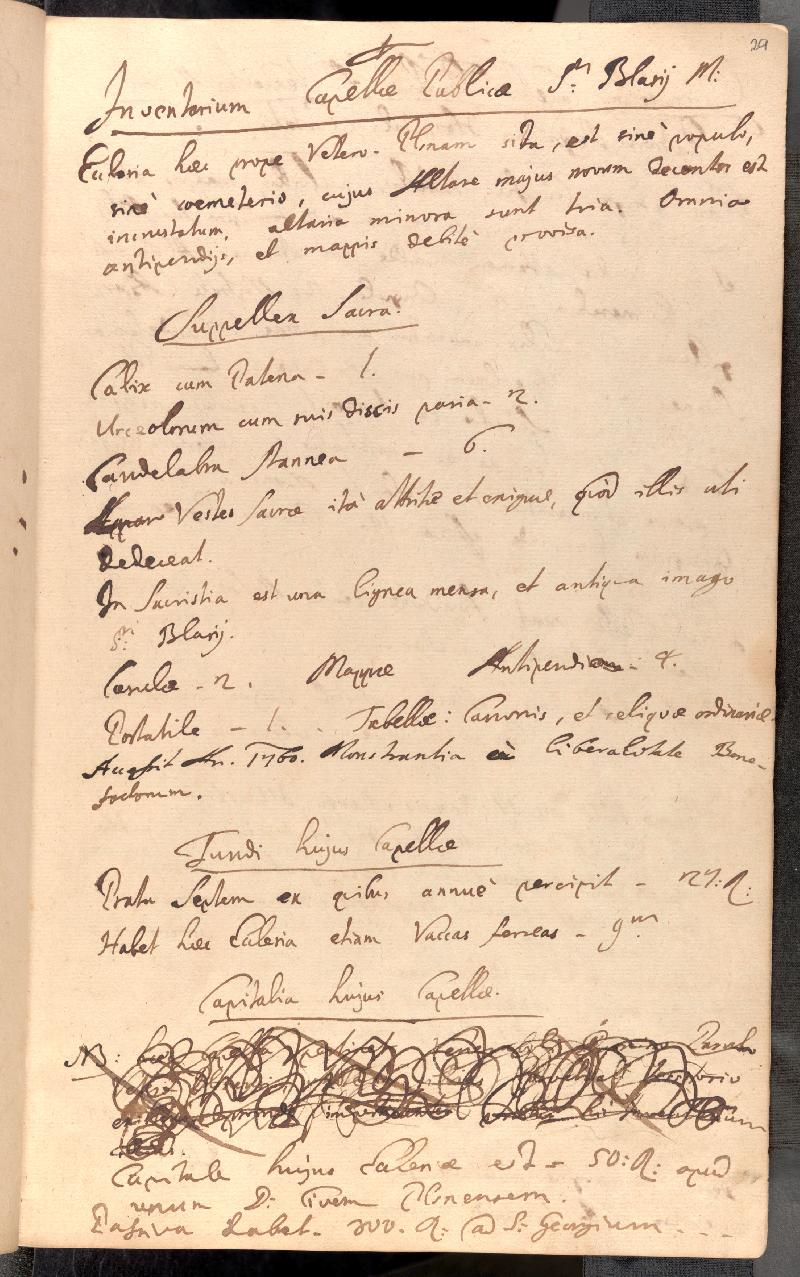 29
Inventarium Capellæ Publicæ Sti Blasij M:
Ecclesia hæc prope Vetero-Plznam sita, est sinè populo,
sinè coemeterio, cujus Altare majus novum decenter est
incrustatum, altaria minora sunt tria. Omnia
antipendijs, et mappis debitè provisa.
Suppellex Sacra.
Calix cum Patena - 1.
Urceolorum cum suis discis paria - 2.
Candelabra stannea - 6.
Vestes Sacræ ità attritæ et exiguæ, quòd illis uti
dedeceat.
In Sacristia est una lignea mensa, et antiqua imago
Sti Blasij.
Casulæ - 2. Mappæ Antipendia - 4.
Portatile - 1. Tabellæ: Canonis, et reliquæ ordinariæ.
Accessit An. 1760. Monstrantia è liberalitate Bene-
factorum.
Fundi hujus Capellæ
Prata Septem ex quibus annuè percipit - 27: R:
Habet hæc Ecclesia etiam Vaccas ferreas - 9m
Capitalia hujus Capellæ.
NB: hæc
Capitale hujus Ecclesiæ est - 50: R: apud
unum D: Civem Plznensem.
Passiva habet - 200. R: ad S: Georgium - - -